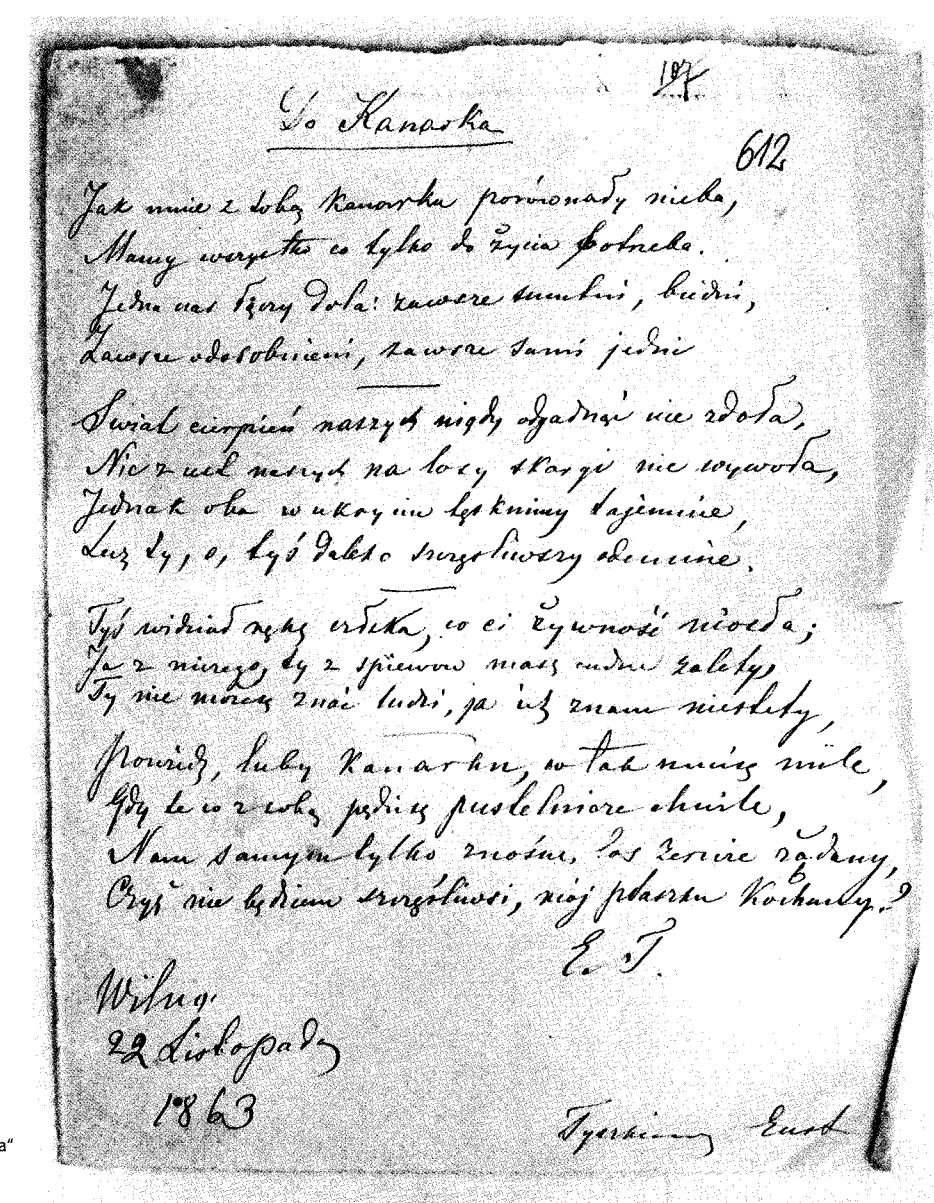 107
Do Kanarka
612
Jak mnie z tobą Kanarku porównały nieba,
Mamy wszystko co tylko do życia potrzeba.
Jedna nas łączy dola: zawsze smutni, biedni,
Zawsze odosobnieni, zawsze sami jedni
Świat cierpień naszych nigdy odgadnąć nie zdoła,
Nic z ust naszych na losy skargi nie wywoła,
Jednak oba w ukryciu tęsknimy tajemnie,
Lecz ty, o, tyś daleko szczęśliwszy odemnie.
Tyś widział rękę człeka, co ci żywność niosła;
Ja z niczego, ty z śpiewow masz cudne zalety,
Ty nie możesz znać ludzi, ja ich znam niestety,
Powiedz, luby Kanarku, co tak nucisz mile,
Gdy te co z tobą pędzisz pustelnicze chwile,
Nam samym tylko znośne, los zesłał żądany,
Czyż nie będziem szczęśliwsi, mój ptaszku Kochany?
E. T.
Wilno.
22 Listopada
1863
a"